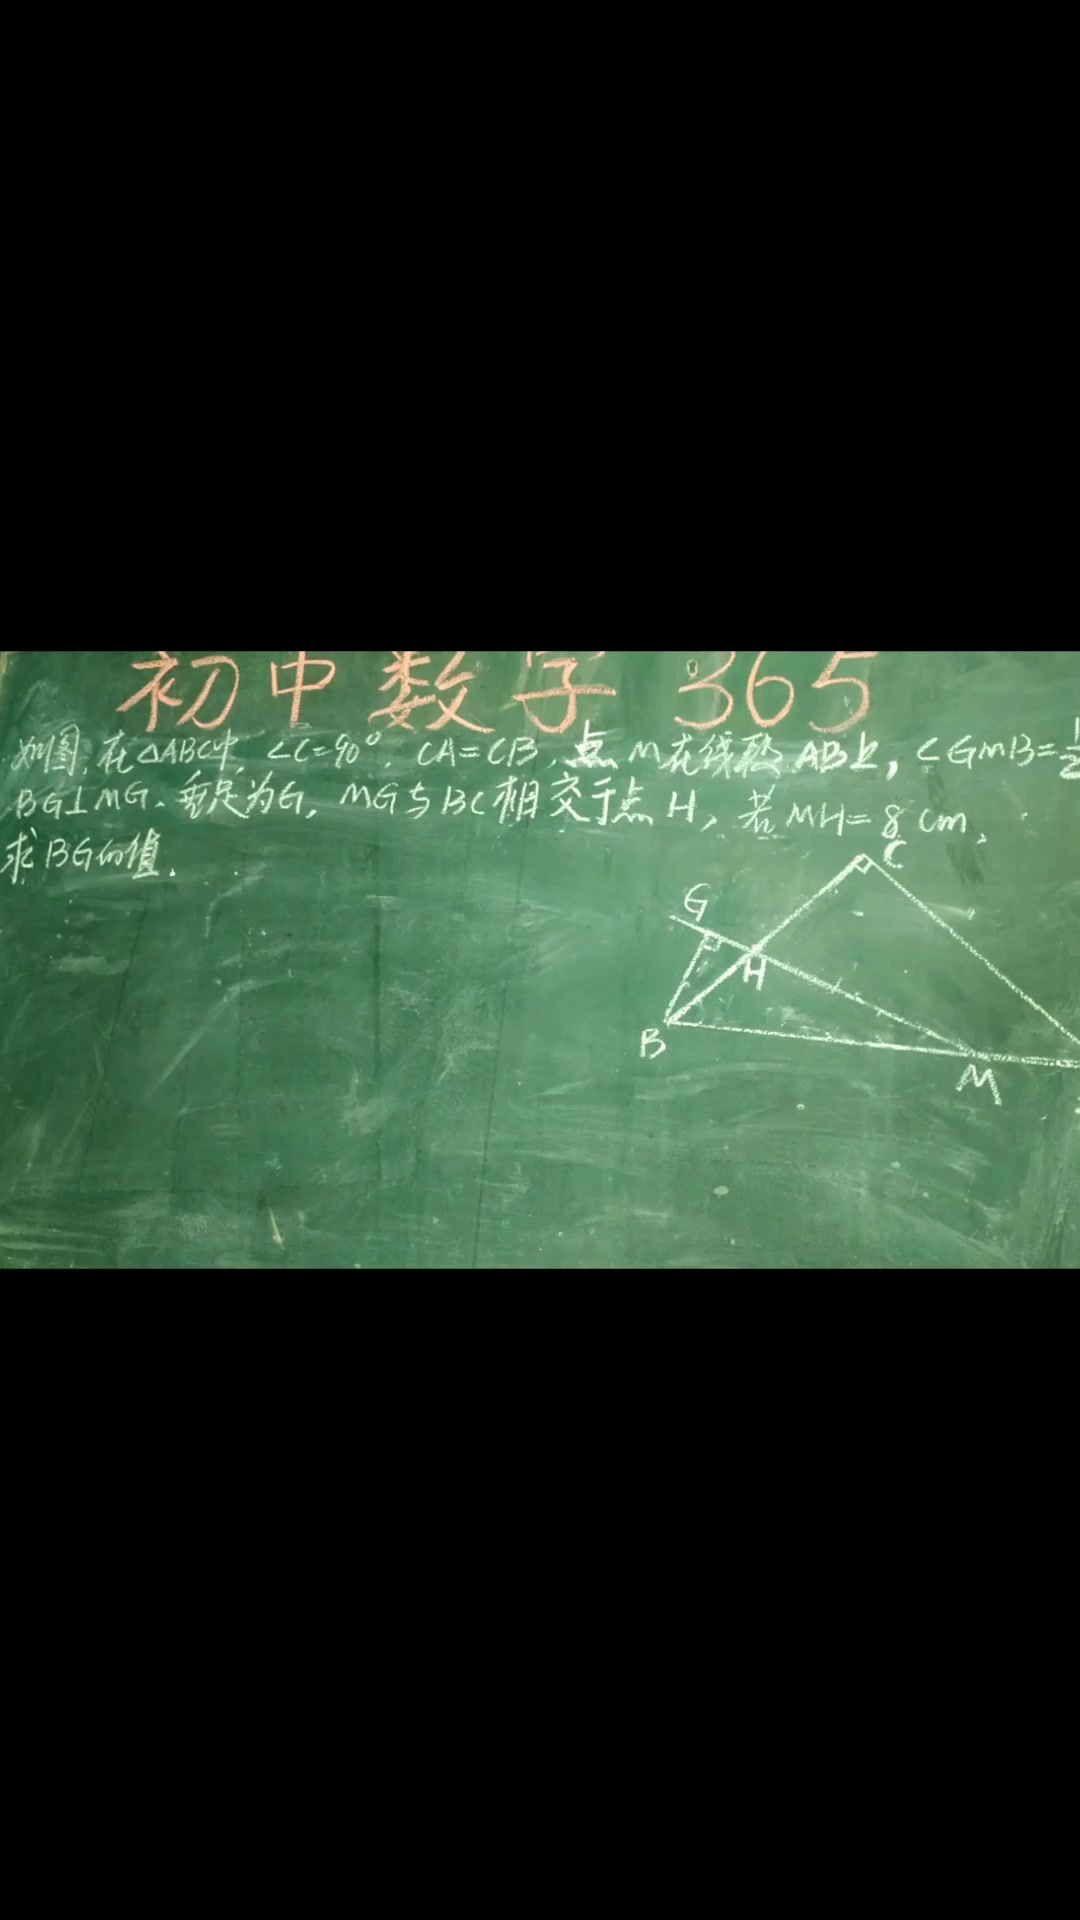 初中数学 365
如图,在△ABC中,∠C=90°,CA=CB,点M在线段AB上,∠GMB=1/2
BG⊥MG,垂足为G,MG与BC相交于点H,若MH=8cm,
求BG的值.
C
G
H
B
M